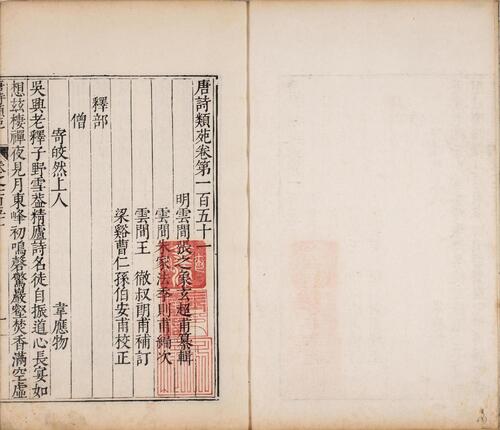 唐詩類苑卷第一百五十一
明雲間張之象玄超甫纂輯
雲間朱家法季則甫編次
雲間王　徹叔朗甫補訂
梁谿曹仁孫伯安甫校正
釋部
僧
寄皎然上人　韋應物
吳興老釋子野雪蓋精廬詩名徒自振道心長宴如
想茲棲禪夜見月東峰初鳴磬驚巖壑焚香滿空虛